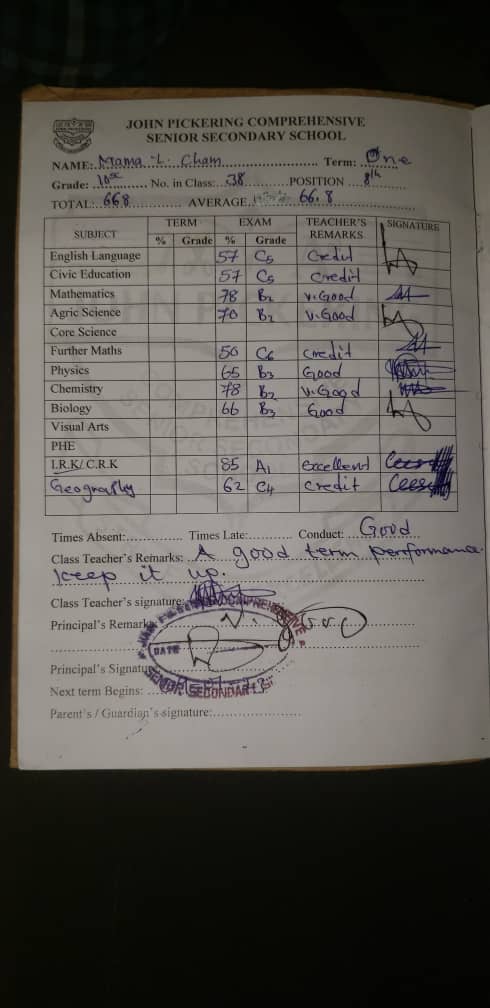 JOHN PICKERING COMPREHENSIVE
SENIOR SECONDARY SCHOOL
NAME: Mama L. Cham Term: One
Grade: 10sc No. in Class: 38 POSITION 8th
TOTAL: 668 AVERAGE 66.8
SUBJECT TERM EXAM TEACHER'S REMARKS SIGNATURE
% Grade % Grade
English Language 57 C5 Credit
Civic Education 57 C5 credit
Mathematics 78 B2 v. Good
Agric Science 70 B2 v. Good
Core Science
Further Maths 50 C6 credit
Physics 65 B3 Good
Chemistry 78 B2 v. Good
Biology 66 B3 Good
Visual Arts
PHE
I.R.K/ C.R.K 85 A1 excellent
Geography 62 C4 Credit
Times Absent: Times Late: Conduct: Good
Class Teacher's Remarks: A good term performance.
keep it up.
Class Teacher's signature:
Principal's Remark
DATE
Principal's Signature
SENIOR SECONDARY
Next term Begins:
Parent's / Guardian's signature: